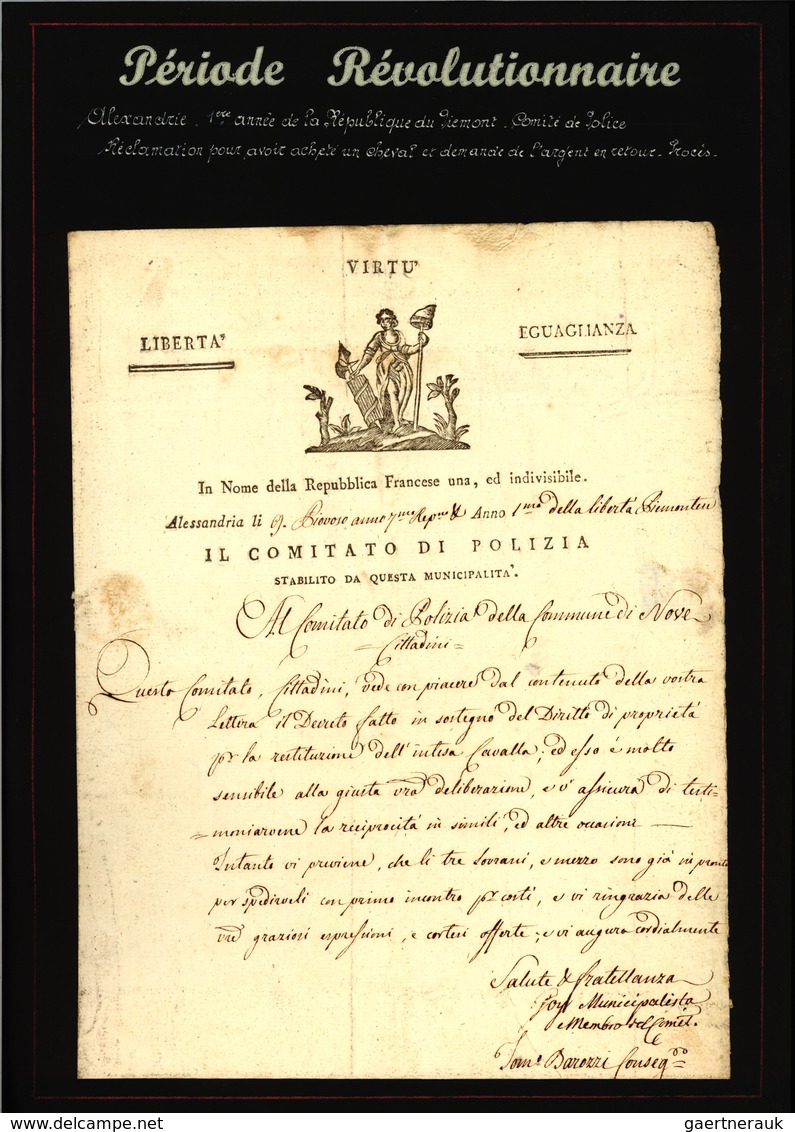 Période Révolutionnaire
Alexandrie. 1ère année de la République du Piemont. Comité de Police
Réclamation pour avoir acheté un cheval et demande de l'argent en retour. Procès.
VIRTU'
LIBERTA'
EGUAGLIANZA
In Nome della Repubblica Francese una, ed indivisibile.
Alessandria li 9. Piovoso anno 7.mo Rep.no & Anno 1.mo della libertà Piemontese
IL COMITATO DI POLIZIA
STABILITO DA QUESTA MUNICIPALITA'.
Al Comitato di Polizia della Commune di Nove
= Cittadini =
Questo Comitato, Cittadini, vede con piacere dal contenuto della vostra
Lettera il Decreto fatto in sostegno del Diritto di proprietà
pr la restituzione dell'intesa Cavalla; ed esso é molto
sensibile alla giusta vra deliberazione, e v'assicura di testi=
=moniarvene la reciprocità in simili, ed altre occasioni
Intanto vi previene, che li tre Sovrani, e mezzo sono già in pronto
per spedirveli con primo incontro pr costì, e vi ringrazia delle
vre graziosi espressioni, e cortesi offerte; e vi augura cordialmente
Salute & fratellanza
Municipalista
e Membro del Comit.
Barozzi
gaertnerauk